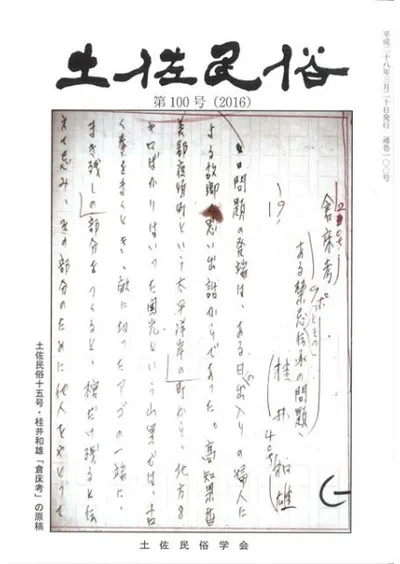 土佐民俗
第100号(2016)
平成二十八年三月二十日発行 通巻一〇〇号
倉床考
ある禁忌伝承の問題
桂井和雄
問題の発端は、ある日出入りの婦人に
よる故郷の思い出話からであった。高知県香
美郡夜須町という太平洋岸の町から、北方
キロばかりはいった国光という山里では、
く麦をまくとき、畝に切ったアゴの一端に、
まき残しの部分をつくると、棺だけ残ると伝
えて忌み、その部分のために他人を
土佐民俗十五号・桂井和雄「倉床考」の原稿
土佐民俗学会